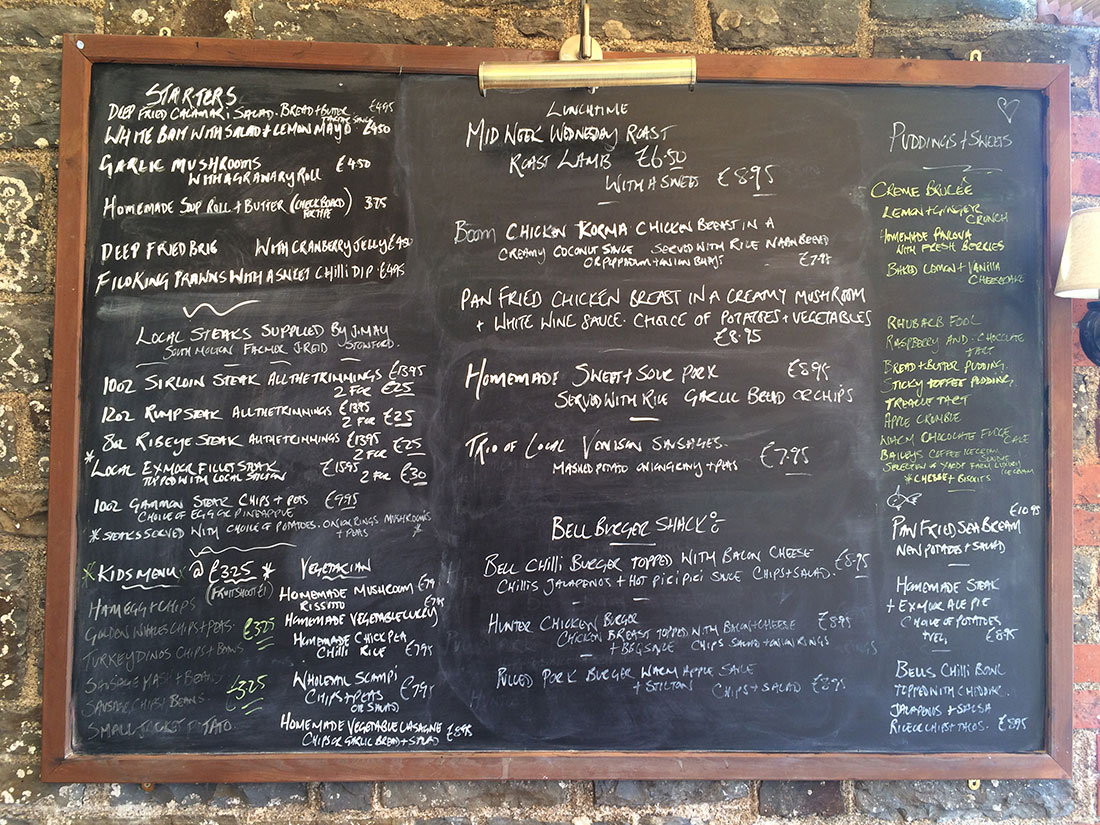 STARTERS
DEEP FRIED CALAMARI SALAD. BREAD + BUTTER £4.95
TARTARE SAUCE
WHITE BAIT WITH SALAD + LEMON MAYO £4.50
GARLIC MUSHROOMS £4.50
WITH A GRANARY ROLL
HOMEMADE SUP ROLL + BUTTER (CHECK BOARD 3.75
FOR TYPE)
DEEP FRIED BRIE WITH CRANBERRY JELLY £4.50
FILO KING PRAWNS WITH A SWEET CHILLI DIP £4.95
LOCAL STEAKS SUPPLIED BY J. MAY
SOUTH MOLTON FARMOR J. REID
10OZ SIRLOIN STEAK ALL THE TRIMMINGS £13.95
2 FOR £25
12OZ RUMP STEAK ALL THE TRIMMINGS £13.95
2 FOR £25
8OZ RIBEYE STEAK ALL THE TRIMMINGS £13.95
2 FOR £25
* LOCAL EXMOOR FILLET STEAK £15.95
TOPPED WITH LOCAL STILTON 2 FOR £30
10OZ GAMMON STEAK CHIPS + PEAS £9.95
CHOICE OF EGG OR PINEAPPLE
* STEAKS SERVED WITH CHOICE OF POTATOES. ONION RINGS MUSHROOMS
+ PEAS *
* KIDS MENU @ £3.25 *
(FRUITSHOOT £1)
HAM EGG + CHIPS
GOLDEN WHALES CHIPS + PEAS. £3.25
TURKEY DINOS CHIPS + BEANS
SAUSAGE MASH + BEANS
SAUSAGE CHIPS BEANS. £3.25
SMALL JACKET POTATO
VEGETARIAN
HOMEMADE MUSHROOM £7.95
RISSITTO
HOMEMADE VEGETABLE CURRY £7.95
HOMEMADE CHICK PEA
CHILLI RICE £7.95
WHOLETAIL SCAMPI
CHIPS + PEAS £7.95
(OR SALAD)
HOMEMADE VEGETABLE LASAGNE £8.95
CHIPS OR GARLIC BREAD + SALAD
LUNCHTIME
MID WEEK WEDNESDAY ROAST
ROAST LAMB £6.50
WITH A SWEET £8.95
BOOM CHICKEN KORMA CHICKEN BREAST IN A
CREAMY COCONUT SAUCE SERVED WITH RICE NAAN BREAD
OR POPPADUM + ONION BHAJI £7.95
PAN FRIED CHICKEN BREAST IN A CREAMY MUSHROOM
+ WHITE WINE SAUCE. CHOICE OF POTATOES + VEGETABLES
£8.95
HOMEMADE SWEET + SOUR PORK £8.95
SERVED WITH RICE GARLIC BREAD OR CHIPS
TRIO OF LOCAL VENISON SAUSAGES.
MASHED POTATO ONION GRAVY + PEAS £7.95
BELL BURGER SHACK
BELL CHILLI BURGER TOPPED WITH BACON CHEESE £8.95
CHILLIS JALAPENOS + HOT PICI PICI SAUCE CHIPS + SALAD.
HUNTER CHICKEN BURGER £8.95
CHICKEN BREAST TOPPED WITH BACON + CHEESE
+ BBQ SAUCE CHIPS SALAD + ONION RINGS
PULLED PORK BURGER WARM APPLE SAUCE
+ STILTON CHIPS + SALAD £8.95
PUDDINGS + SWEETS
CREME BRULÉE
LEMON + GINGER
CRUNCH
HOMEMADE PAVLOVA
WITH FRESH BERRIES
BAKED LEMON + VANILLA
CHEESECAKE
RHUBARB FOOL
RASPBERRY AND CHOCOLATE
TART
BREAD + BUTTER PUDDING.
STICKY TOFFEE PUDDING.
TREACLE TART
APPLE CRUMBLE
WARM CHOCOLATE FUDGE
CAKE
BAILEYS COFFEE ICECREAM
SUNDAE
SELECTION OF YARDE FARM LUXURY
ICECREAM
* CHEESE + BISCUITS
£10.95
PAN FRIED SEA BREAM
NEW POTATOES + SALAD
HOMEMADE STEAK
+ EXMOOR ALE PIE
CHOICE OF POTATOES
+ VEG £8.95
BELLS CHILLI BOWL
TOPPED WITH CHEDDAR.
JALAPENOS + SALSA
RICE OR CHIPS + TACOS. £8.95